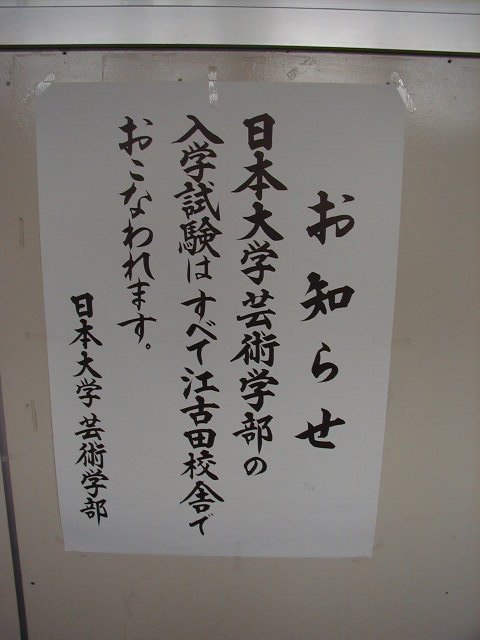 お知らせ
日本大学芸術学部の
入学試験はすべて江古田校舎で
おこなわれます。
日本大学 芸術学部